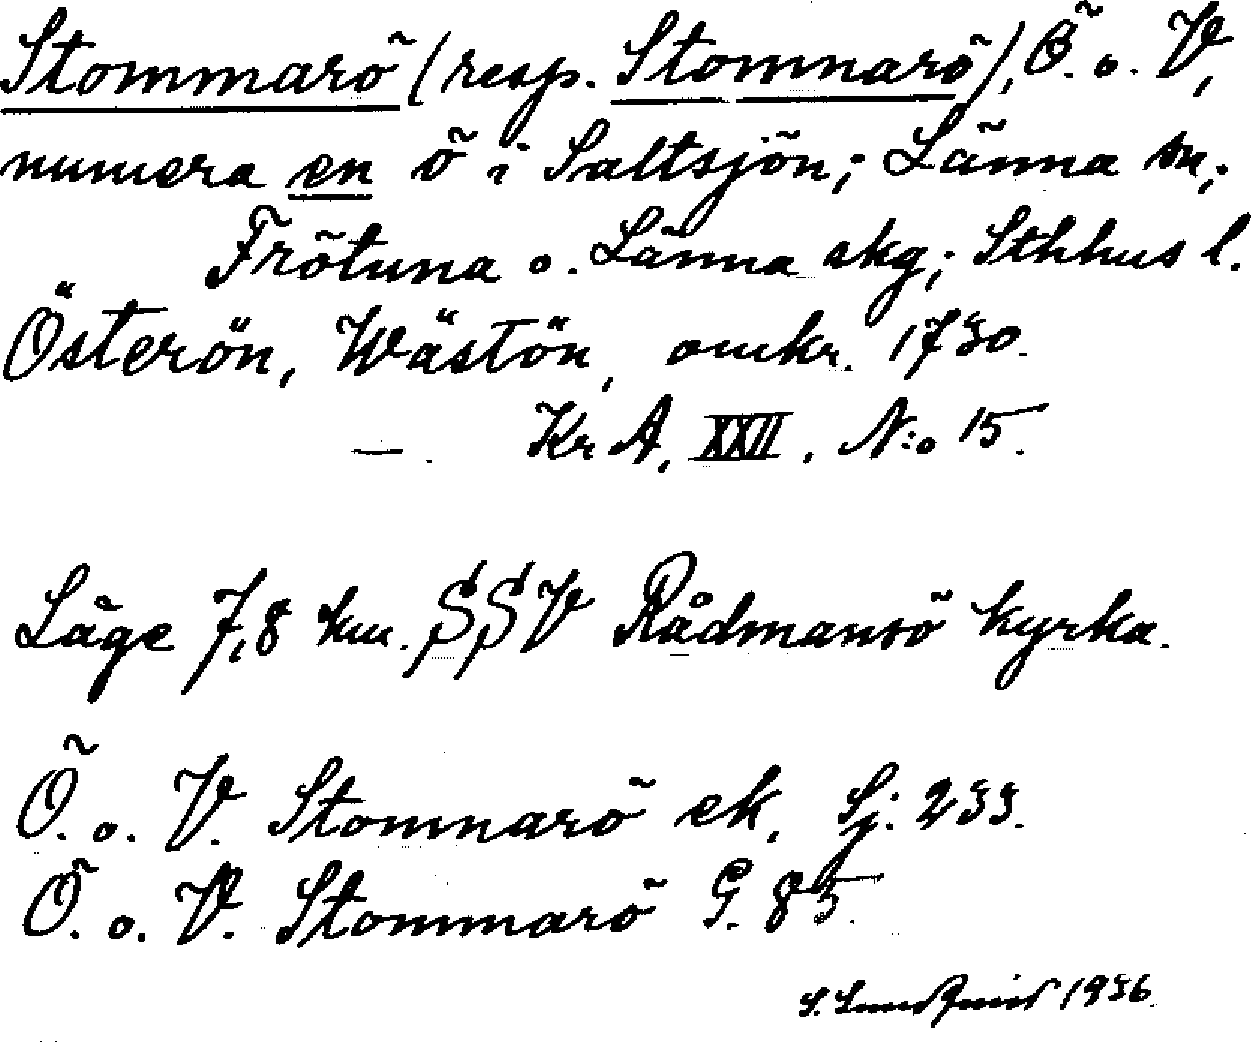 Stommarö (resp. Stomnarö), Ö. o. V,
numera en ö i Saltsjön; Länna sn;
Frötuna o. Länna skg; Sthhus l.
Österön, Wästön, omkr. 1730.
—. Kr A, XXII. N:o 15.
Läge 7,8 km. SSV Rådmansö kyrka.
Ö. o. V. Stomnarö ek. Sj: 233.
Ö. o. V. Stommarö G. 85.
S. Lundqvist 1936.